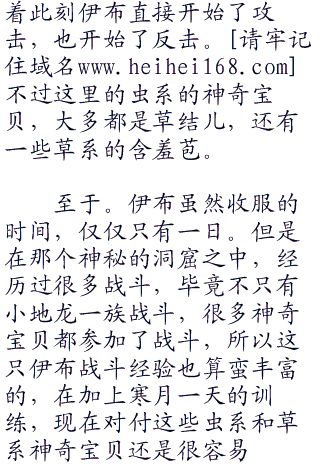 着此刻伊布直接开始了攻
击，也开始了反击。[请牢记
住域名www.heihei168.com]
不过这里的虫系的神奇宝
贝，大多都是草结儿，还有
一些草系的含羞苞。
至于。伊布虽然收服的
时间，仅仅只有一日。但是
在那个神秘的洞窟之中，经
历过很多战斗，毕竟不只有
小地龙一族战斗，很多神奇
宝贝都参加了战斗，所以这
只伊布战斗经验也算蛮丰富
的，在加上寒月一天的训
练，现在对付这些虫系和草
系神奇宝贝还是很容易